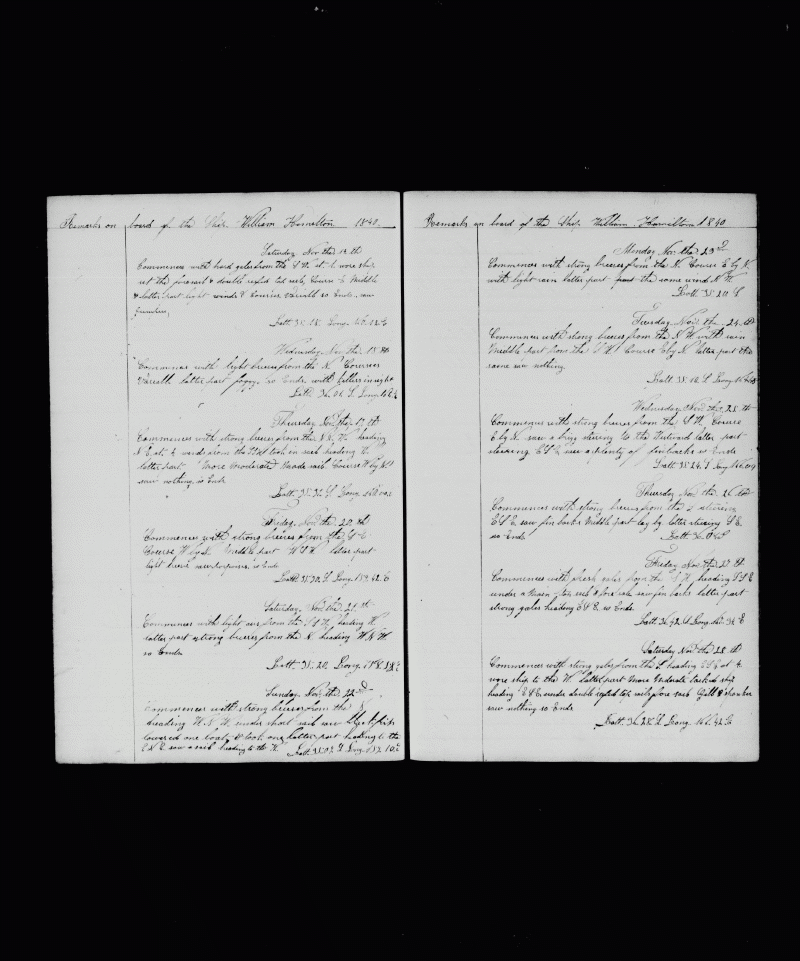 Remarks on board of the Ship William Hamilton 1840
Saturday Nov the 14 th
Commences with hard gales from the S W at 6 wore ship
set the foresail & double reefed top sails, Course E Middle
& latter part light winds & Course Variable so Ends. saw
Latt. 35. 18. Long. 160. 02 E
Wednesday Nov the 18 th
Commences with light breeses from the N Courses
Variable latter part foggy. so Ends with in sight
Latt. 36. 01 S. Long.
Thursday Nov the 19 th
Commences with strong breeses from the N. W. heading
N E, at 4 wards from the West took in sail heading W.
latter part More Moderate Made sail Course W by N
saw nothing so Ends
Latt. 35. 36 S Long.
Friday. Nov the 20 th
Commences with strong breeses from the S E
Course W by N Middle part W S W latter part
light breese saw so Ends
Latt. 35. 30. S Long. 159. 42. E
Saturday. Nov the 21. st
Commences with light airs from the S S W, heading W.
latter part strong breeses from the N. heading W N W
so Ends.
Latt. 35. 20. Long.
Sunday. Nov the 22nd
Commences with strong breeses from the N
heading W. N. W. under short sail saw Blackfish
lowered one boat & took one latter part heading to the
E N E saw a sail heading to the W. Latt. 35. 02 S Long. 157. 10. E
Remarks on board of the Ship William Hamilton 1840
Monday Nov. the 23d
Commences with strong breeses from the N. Course E by N
with light rain latter part the same wind N. W.
Latt 35. 10 S
Tuesday Nov the 24. th
Commences with strong breeses from the N W with rain
Middle part from the S W. Course E by N. latter part the
same saw nothing.
Latt 35. 10. S Long
Wednesday Nov the 25. th
Commences with strong breeses from the S W. Course
E by N. saw a brig stearing to the Westward latter part
stearing E S E saw a plenty of finbacks so Ends
Latt. 35. 24. S Long
Thursday Nov the 26 th
Commences with strong breeses from the stearing
E S E, saw finbacks Middle part lay by latter stearing S E.
so Ends. Latt. 36.
Friday Nov. the 27 th.
Commences with fresh gales from the S W, heading S S E
under a Main top sail & fore sail. saw finbacks latter part
strong gales heading E S E. so Ends
Latt. 36. 42. S Long
Saturday Nov the 28. th
Commences with strong gales from the S. heading E S E at 4.
wore ship to the W. latter part More Moderate tacked ship
heading E S E under double reefed top sails fore sail Gibb & spanker
saw nothing so Ends
Latt. 36. 28. S. Long. 161. 42 E